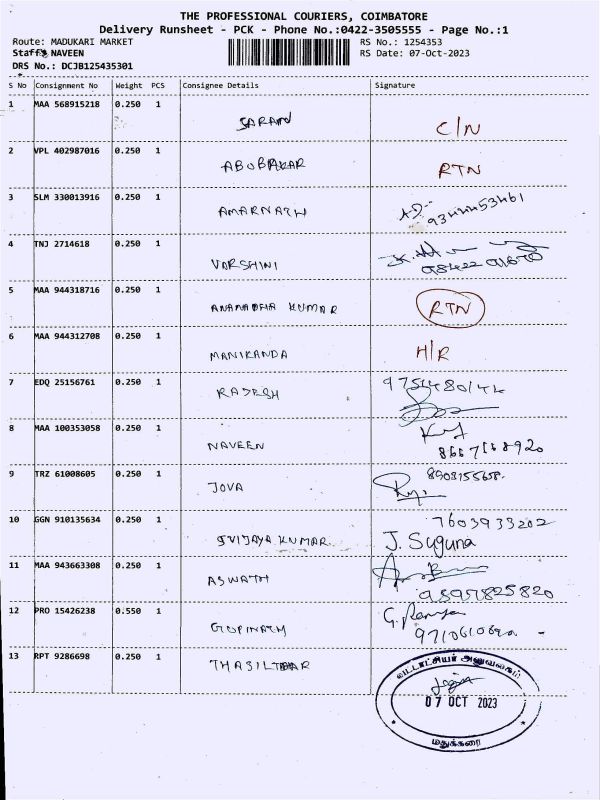 THE PROFESSIONAL COURIERS, COIMBATORE
Delivery Runsheet - PCK - Phone No.:0422-3505555 - Page No.:1
Route: MADUKARI MARKET
RS No.: 1254353
Staff: NAVEEN
RS Date: 07-Oct-2023
DRS No.: DCJB125435301
S No Consignment No Weight PCS Consignee Details Signature
1 MAA 568915218 0.250 1
SARAN C/N
2 VPL 402987016 0.250 1
ABUBAKAR RTN
3 SLM 330013916 0.250 1
AMARNATH
4 TNJ 2714618 0.250 1
VARSHINI
5 MAA 944318716 0.250 1
KUMAR RTN
6 MAA 944312708 0.250 1
MANIKANDA H/R
7 EDQ 25156761 0.250 1
RAJESH
8 MAA 100353058 0.250 1
NAVEEN
9 TRZ 61008605 0.250 1
8903155658.
JOVA
10 GGN 910135634 0.250 1
7603933202
JVIJAYA KUMAR J. Suguna
11 MAA 943663308 0.250 1
ASWATH
12 PRO 15426238 0.550 1
GOPINATH
13 RPT 9286698 0.250 1
வட்டாட்சியர் அலுவலகம்
07 OCT 2023
மதுக்கரை